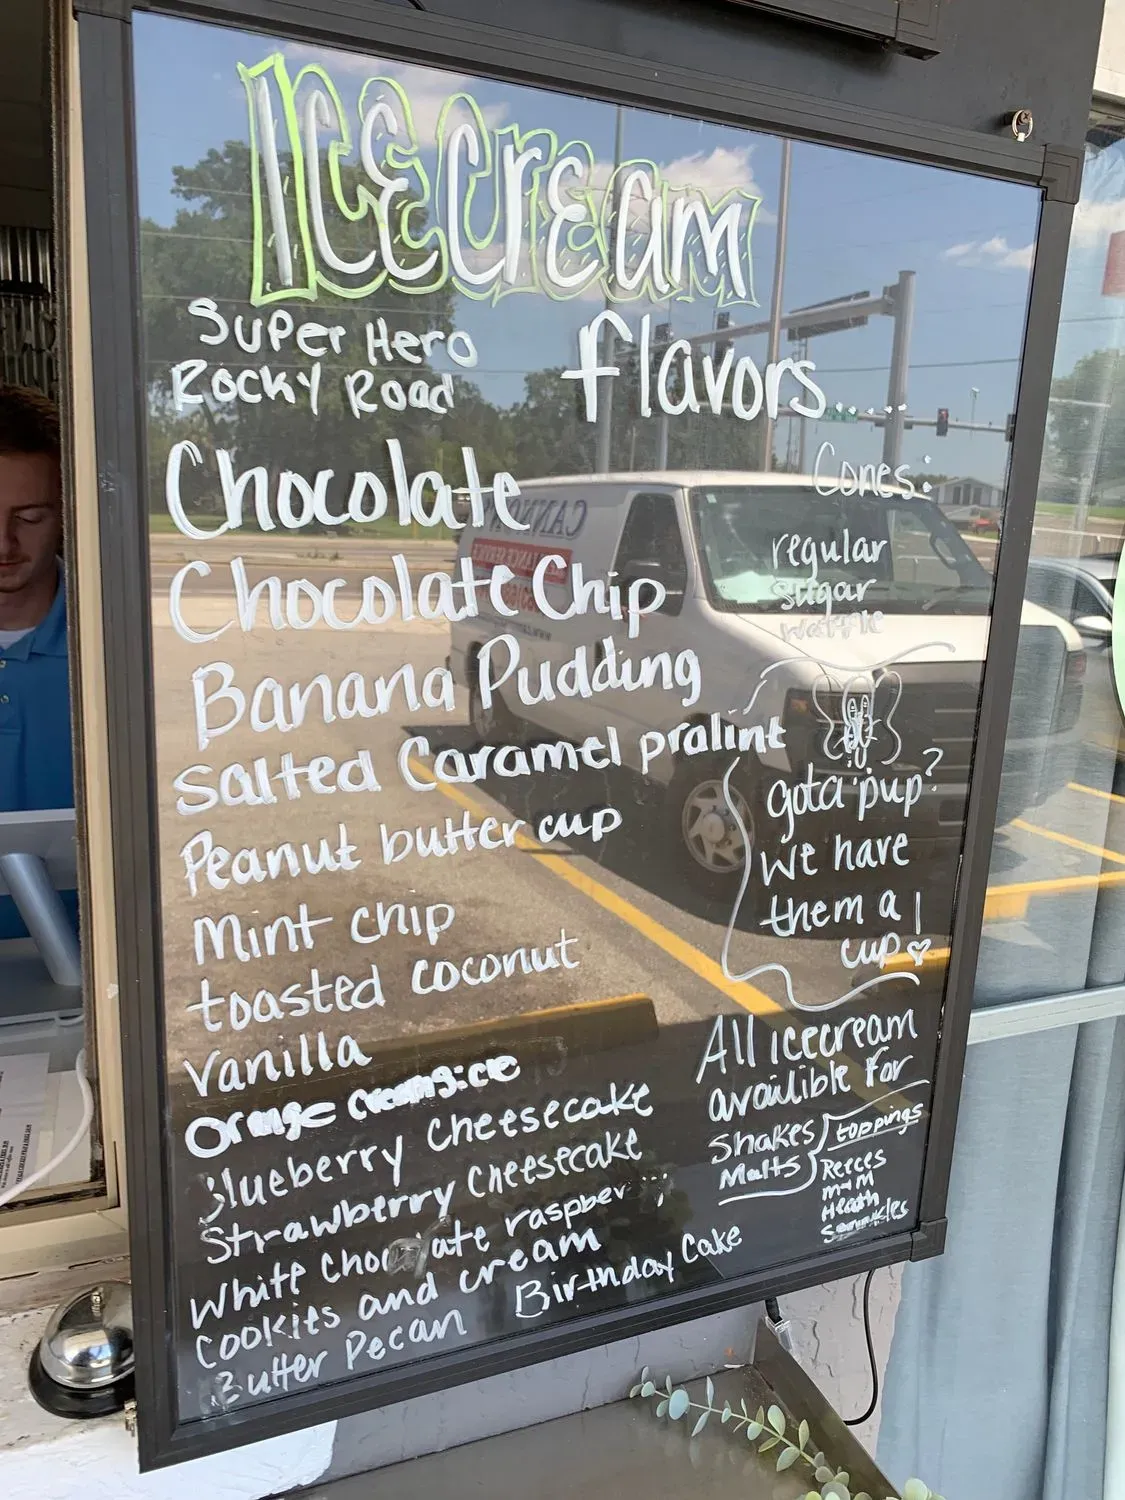 Icecream
flavors.....
Super Hero
Rocky Road
Chocolate
Chocolate Chip
Banana Pudding
Salted Caramel pralint
Peanut butter cup
Mint chip
toasted coconut
Vanilla
Orange
Blueberry Cheesecake
Strawberry Cheesecake
White
Cookies and cream
Butter Pecan
Birthday Cake
Cones:
regular
sugar
waffle
gota pup?
We have
them a
cup
All icecream
availible for
Shakes
Malts
toppings
Reeces
M+M
Heath